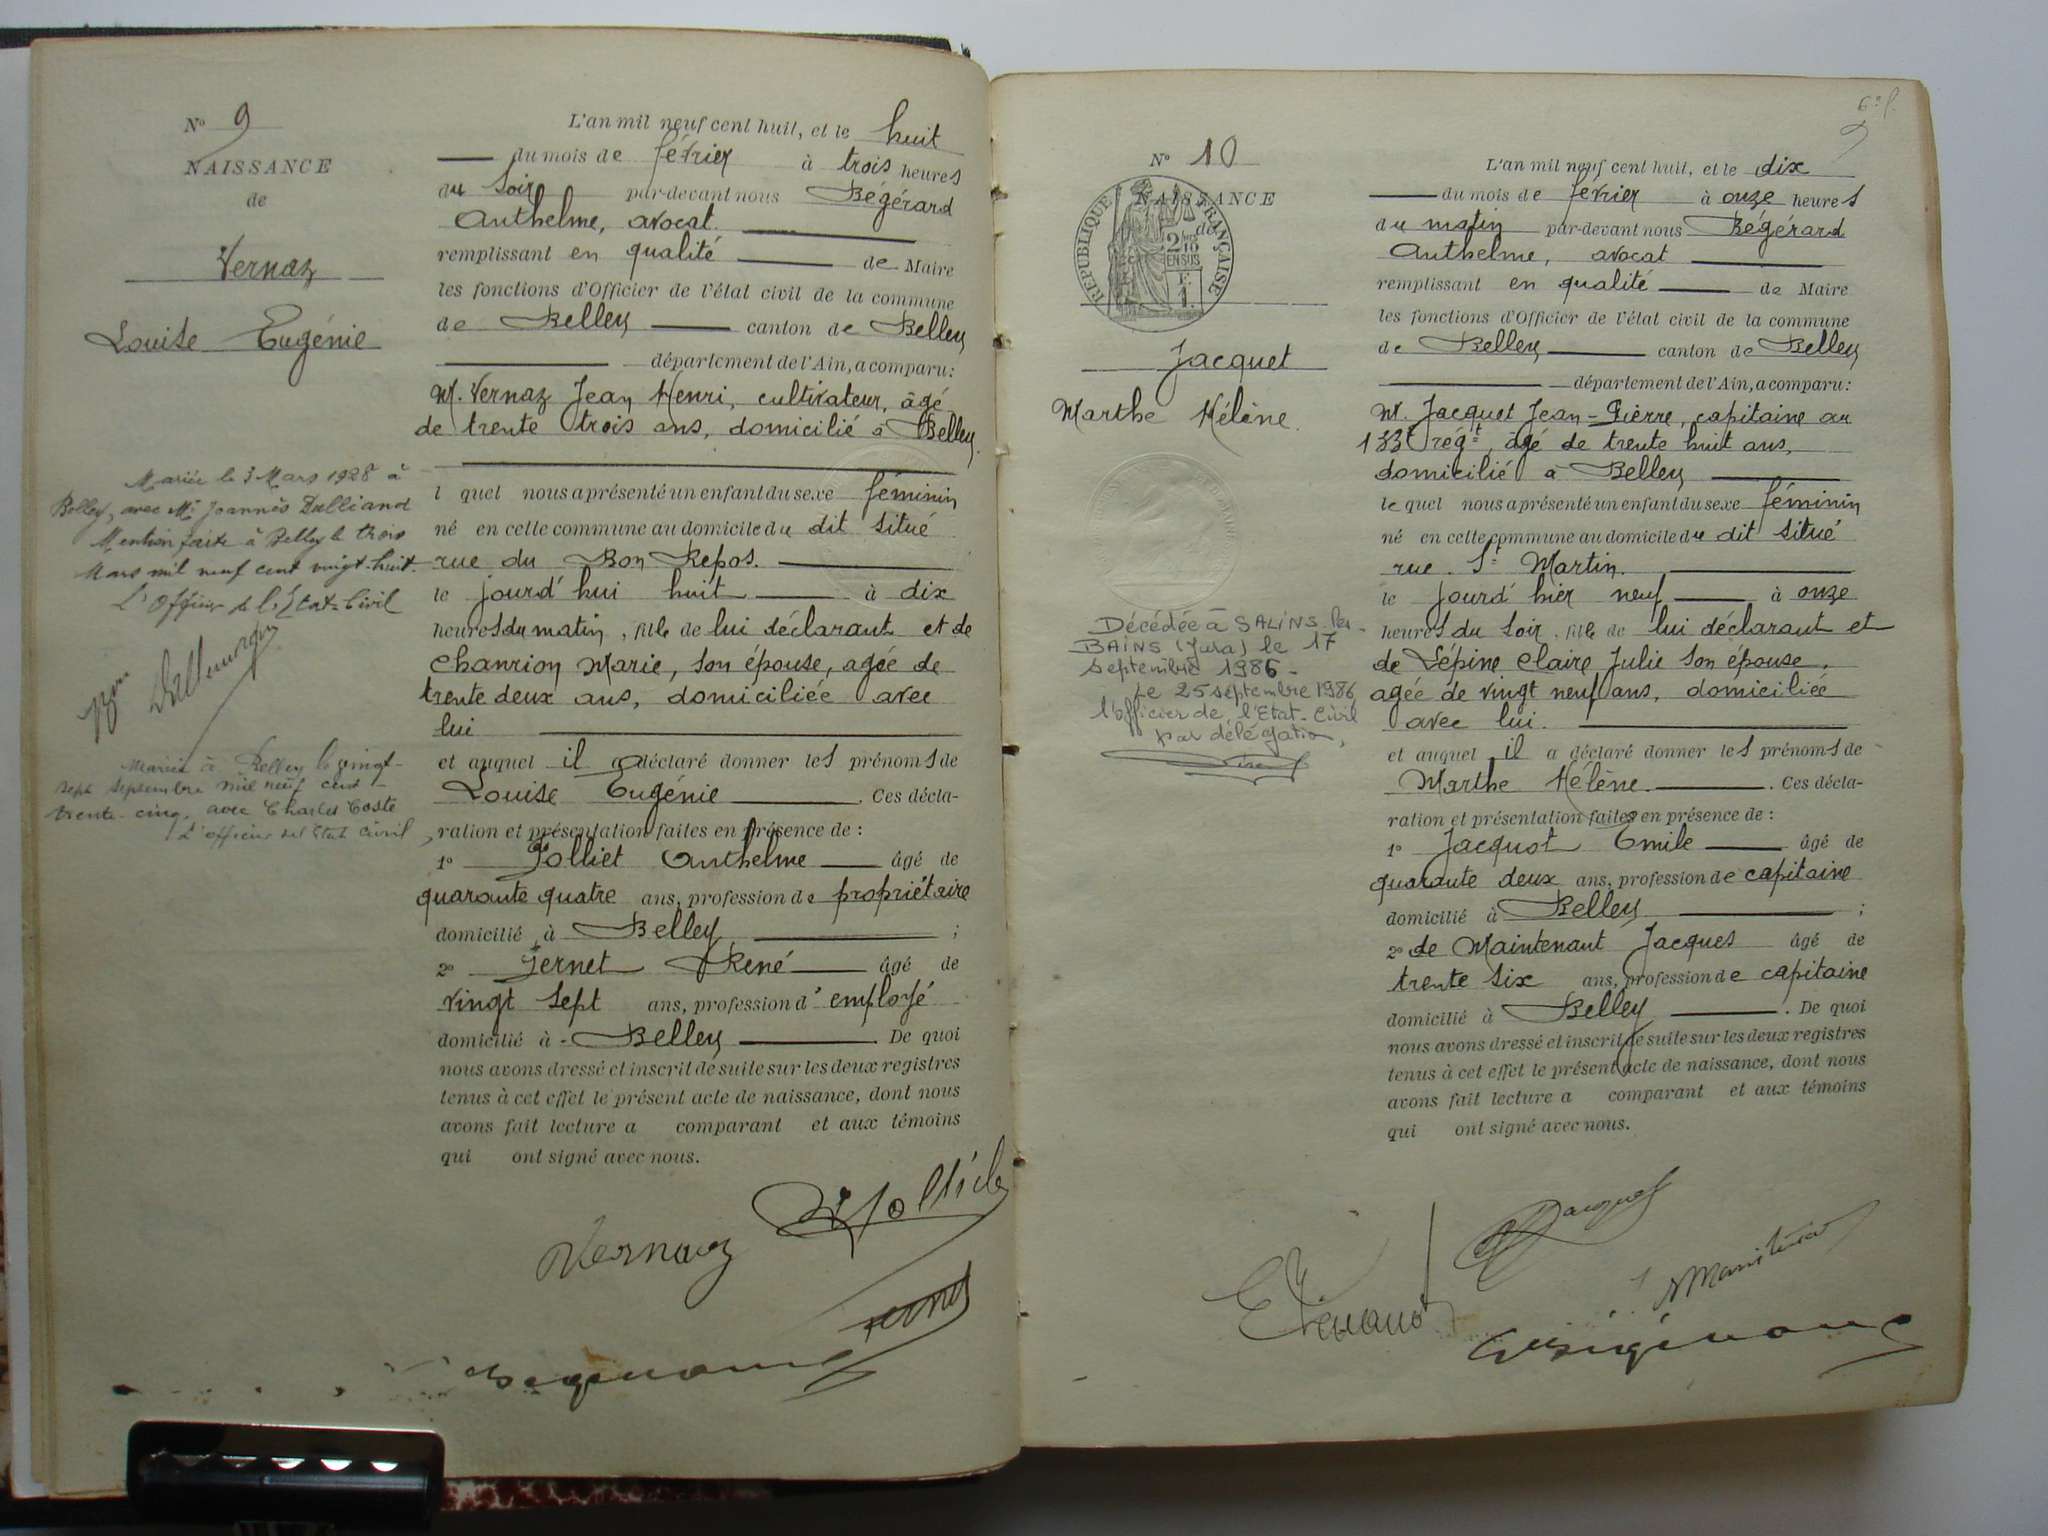 N° 9
NAISSANCE
de
Vernaz
Louise Eugénie
Mariée le 3 Mars 1928 à
Belley, avec Mr Joannès Dalliand
Mention faite à Belley le trois
Mars mil neuf cent vingt-huit.
L'Officier de l'Etat-Civil
Mariée à Belley le vingt-
sept septembre mil neuf cent
trente-cinq, avec Charles Coste
L'officier de l'Etat civil
L'an mil neuf cent huit, et le huit
du mois de février à trois heures
du soir par-devant nous Bégérard
Anthelme, avocat.
remplissant en qualité de Maire
les fonctions d'Officier de l'état civil de la commune
de Belley canton de Belley
département de l'Ain, a comparu:
M. Vernaz Jean Henri, cultivateur, âgé
de trente trois ans, domicilié à Belley.
l quel nous a présenté un enfant du sexe féminin
né en cette commune au domicile du dit situé
rue du Bon Repos.
le jourd'hui huit à dix
heures du matin, fille de lui déclarant et de
Chanrion Marie, son épouse, agée de
trente deux ans, domiciliée avec
lui
et auquel il a déclaré donner les prénoms de
Louise Eugénie. Ces décla-
ration et présentation faites en présence de :
1° Jolliet Anthelme âgé de
quarante quatre ans, profession de propriétaire
domicilié à Belley ;
2° Jernet René âgé de
vingt sept ans, profession d'employé
domicilié à Belley. De quoi
nous avons dressé et inscrit de suite sur les deux registres
tenus à cet effet le présent acte de naissance, dont nous
avons fait lecture a comparant et aux témoins
qui ont signé avec nous.
Vernaz
N° 10
NAISSANCE
de
RÉPUBLIQUE FRANÇAISE
2/10 EN SUS
Jacquet
Marthe Hélène.
Décédée à SALINS-les-
BAINS (Jura) le 17
septembre 1986-
Le 25 septembre 1986
l'officier de l'Etat-Civil
par délégation,
L'an mil neuf cent huit, et le dix
du mois de février à onze heures
du matin par-devant nous Bégérard
Anthelme, avocat
remplissant en qualité de Maire
les fonctions d'Officier de l'état civil de la commune
de Belley canton de Belley
département de l'Ain, a comparu:
M. Jacquet Jean-Pierre, capitaine au
133e régt, âgé de trente huit ans,
domicilié à Belley
le quel nous a présenté un enfant du sexe féminin
né en cette commune au domicile du dit situé
rue St Martin.
le jourd'hier neuf à onze
heures du soir, fille de lui déclarant et
de Lépine Claire Julie son épouse,
agée de vingt neuf ans, domiciliée
avec lui.
et auquel il a déclaré donner les prénoms de
Marthe Hélène. Ces décla-
ration et présentation faites en présence de :
1° Jacquot Emile âgé de
quarante deux ans, profession de capitaine
domicilié à Belley ;
2° de Maintenant Jacques âgé de
trente six ans, profession de capitaine
domicilié à Belley. De quoi
nous avons dressé et inscrit de suite sur les deux registres
tenus à cet effet le présent acte de naissance, dont nous
avons fait lecture a comparant et aux témoins
qui ont signé avec nous.
Jacquet